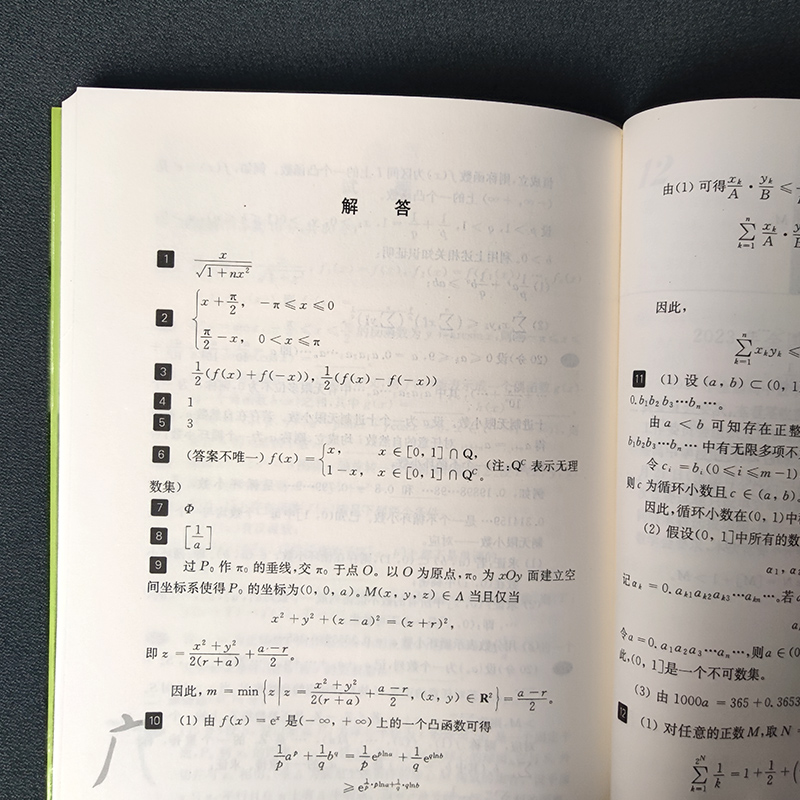 解 答
1 x/√(1+nx²)
2 { x+π/2, −π⩽x⩽0
π/2−x, 0<x⩽π
3 1/2(f(x)+f(−x)), 1/2(f(x)−f(−x))
4 1
5 3
6 (答案不唯一) f(x)= { x, x∈[0, 1]∩Q,
1−x, x∈[0, 1]∩Qᶜ。 (注:Qᶜ 表示无理
数集)
7 Φ
8 [1/a]
9 过 P₀ 作 π₀ 的垂线,交 π₀ 于点 O。以 O 为原点,π₀ 为 xOy 面建立空
间坐标系使得 P₀ 的坐标为(0, 0, a)。M(x, y, z)∈Λ 当且仅当
x²+y²+(z−a)²=(z+r)²,
即 z=(x²+y²)/(2(r+a))+(a−r)/2。
因此, m=min{z|z=(x²+y²)/(2(r+a))+(a−r)/2, (x, y)∈R²}=(a−r)/2。
10 (1) 由 f(x)=eˣ 是(−∞, +∞)上的一个凸函数可得
1/p aᵖ+1/q b^q=1/p e^(plna)+1/q e^(qlnb)
⩾e^(1/p·plna+1/q·qlnb)
由(1) 可得 x_k/A · y_k/B ⩽
∑_{k=1}^{n} x_k/A ·
因此,
∑_{k=1}^{n} x_k y_k ⩽
11 (1) 设 (a, b)⊂(0, 1
0.b₁b₂b₃…bₙ…。
由 a<b 可知存在正整
b₁b₂b₃…bₙ… 中有无限多项不
令 cᵢ=bᵢ(0⩽i⩽m−1)
则 c 为循环小数且 c∈(a, b)。
因此,循环小数在(0, 1)中
(2) 假设(0, 1]中所有的数
a₁, a
记 a_k=0.a_{k1}a_{k2}a_{k3}…a_{km}…。若 a
令 a=0.a₁a₂a₃…aₙ…,则 a∈(0
此,(0, 1]是一个不可数集。
(3) 由 1000a=365+0.3653
12 (1) 对任意的正数 M,取 N=
∑_{k=1}^{2^N} 1/k=1+1/2+(